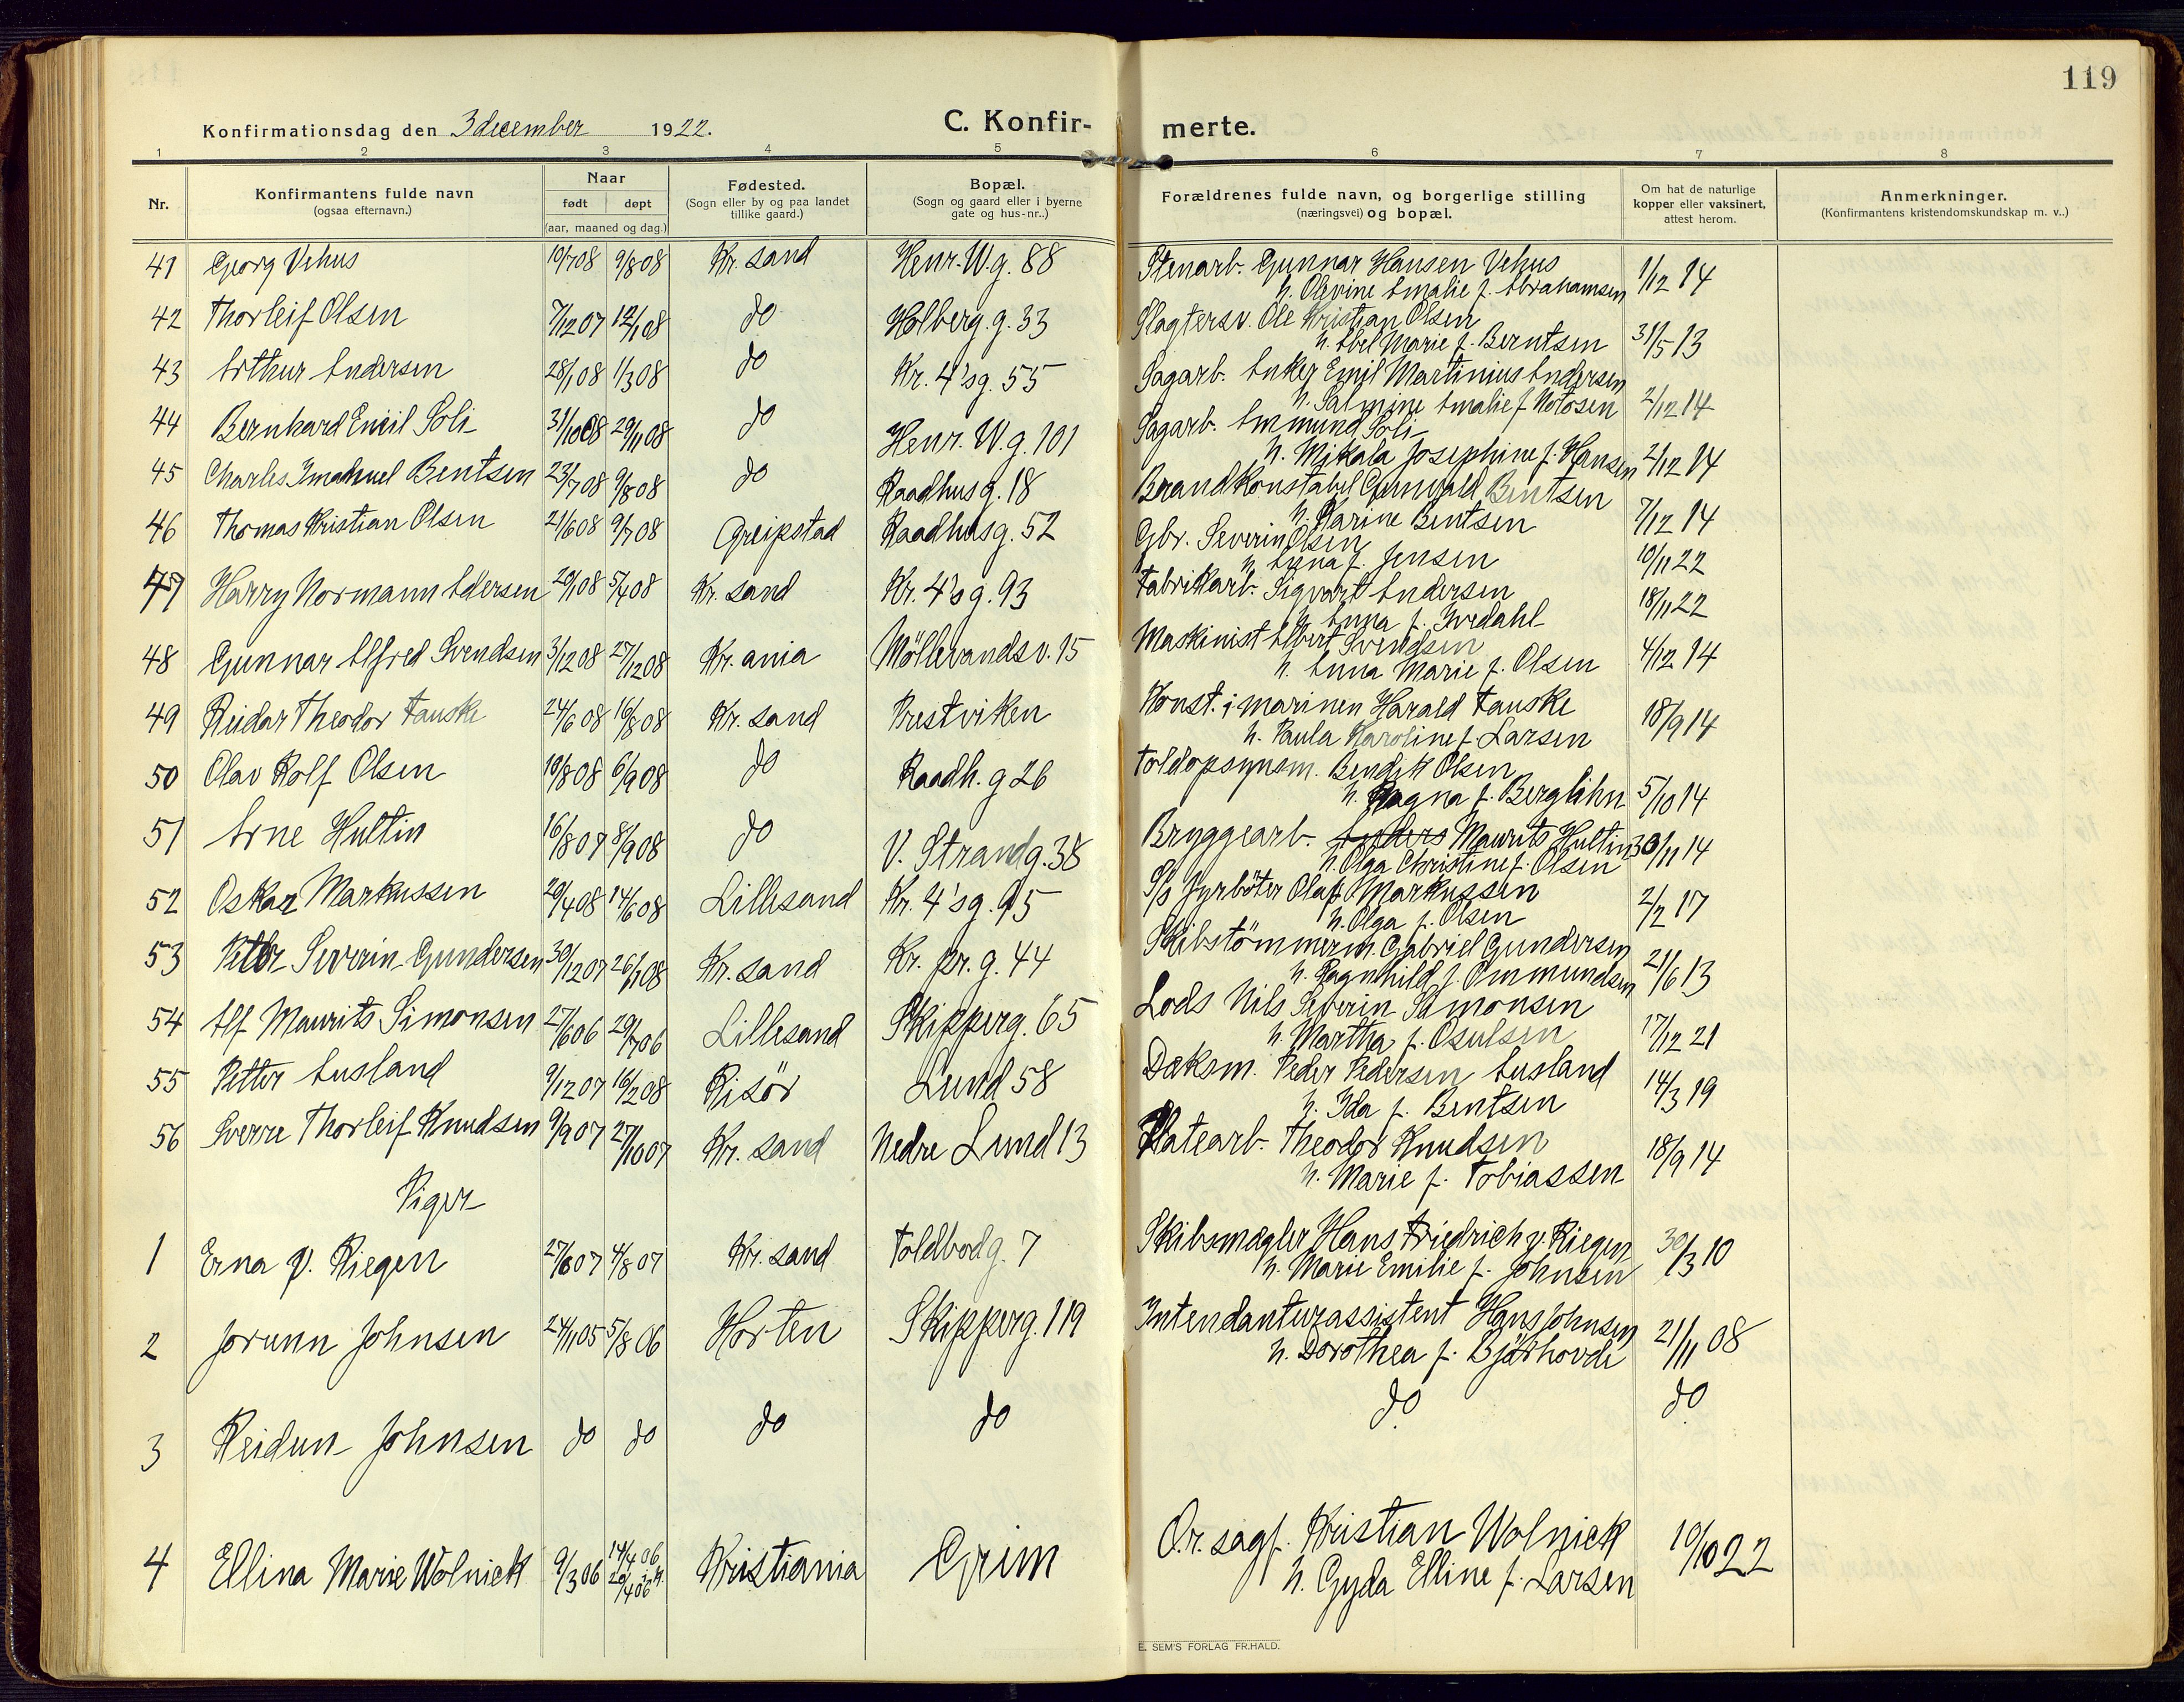 119
Konfirmationsdag den 3 december 1922.
C. Konfir- merte.
1 2 3 4 5 6 7 8
Nr. Konfirmantens fulde navn (ogsaa efternavn.) Naar født døpt (aar, maaned og dag.) Fødested. (Sogn eller by og paa landet tillike gaard.) Bopæl. (Sogn og gaard eller i byerne gate og hus-nr..) Forældrenes fulde navn, og borgerlige stilling (næringsvei) og bopæl. Om hat de naturlige kopper eller vaksinert, attest herom. Anmerkninger. (Konfirmantens kristendomskundskap m. v..)
41 Georg Vehus 10/7 08 9/8 08 Kr. sand Henr. W.g. 88 Stenarb. Gunnar Hansen Vehus 1/12 14
h. Olevine Amalie f. Abrahamsen
42 Thorleif Olsen 7/12 07 12/1 08 do Holberg.g. 33 Slagtersv. Ole Kristian Olsen 31/5 13
h. Abel Marie f. Berntsen
43 Arthur Andersen 28/1 08 1/3 08 do Kr. 4's g. 55 Sagarb. Anker Emil Martinius Andersen 2/12 14
h. Salmine Amalie f.
44 Bernhard Emil Soli 31/10 08 29/11 08 do Henr. W.g. 101 Sagarb. Ammund Soli 2/12 14
h. Mikala Josephine f. Hansen
45 Charles Imanuel Bentsen 23/7 08 9/8 08 do Raadhusg. 18 Brandkonstabel Gunvald Bentsen 7/12 14
h. Karine Bentsen
46 Thomas Kristian Olsen 21/6 08 9/7 08 Greipstad Raadhusg. 52 Gbr. Severin Olsen 10/11 22
h. Anna f. Jensen
47 Harry Normann Adersen 20/1 08 5/4 08 Kr. sand Kr. 4's g. 93 Fabrikarb. Sigvart Andersen 18/11 22
h. Anna f. Ivedahl
48 Gunnar Alfred Svendsen 3/12 08 27/12 08 Kr. ania Möllevandsv. 15 Maskinist Albert Svendsen 4/12 14
h. Anna Marie f. Olsen
49 Reidar Theodor Fauske 24/6 08 16/8 08 Kr. sand Prestviken Konst. i marinen Harald Fauske 18/9 14
h. Paula Karoline f. Larsen
50 Olav Rolf Olsen 10/8 08 6/9 08 do Raadh. g 26 Toldopsynsm. Bendik Olsen 5/10 14
h. Ragna f. Berglihn
51 Arne Hultin 16/8 07 8/9 08 do V. Strandg. 38 Bryggearb. Anders Maurits Hultin 30/11 14
h. Olga Christine f. Olsen
52 Oskar Markussen 20/4 08 14/6 08 Lillesand Kr. 4's g. 95 S/s fyrböter Olaf Markussen 2/2 17
h. Olga f. Olsen
53 Peter Severin Gundersen 30/12 07 26/1 08 Kr. sand Kr. pr. g. 44 Skibstömmerm. Gabriel Gundersen 21/6 13
h. Ragnhild f. Ommundsen
54 Alf Maurits Simonsen 27/6 06 29/7 06 Lillesand Skipperg. 65 Lods Nils Severin Simonsen 17/12 21
h. Martha f. Osulsen
55 Petter Ausland 9/12 07 16/2 08 Risör Lund 58 Dæksm. Peder Pedersen Ausland 14/3 19
h. Ida f. Bentsen
56 Sverre Thorleif Knudsen 9/9 07 27/10 07 Kr. sand Nedre Lund 13 Platearb. Theodor Knudsen 18/9 14
h. Marie f. Tobiassen
Piger
1 Erna v. Riegen 27/6 07 4/8 07 Kr. sand Toldbodg. 7 Skibsmægler Hans Friedrich v. Riegen 30/3 10
h. Marie Emilie f. Johnsen
2 Jorunn Johnsen 24/11 05 5/8 06 Horten Skipperg. 119 Intendanturassistent Hans Johnsen 21/11 08
h. Dorothea f. Bjärhovde
3 Reidun Johnsen do do do do do do
4 Ellina Marie Wolnick 9/3 06 14/4 06 29/4 06 i k. Kristiania Grim O.r. sagf. Kristian Wolnick 10/10 22
h. Gyda Elline f. Larsen
E. SEM'S FORLAG FR.HALD.